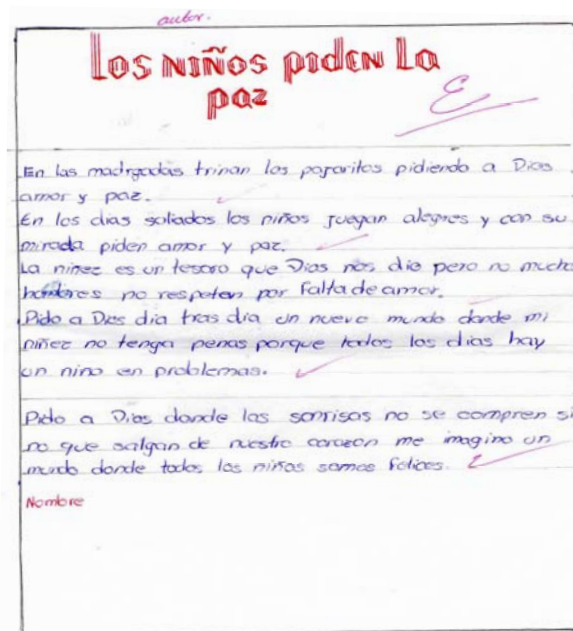 autor.
Los niños piden La
paz
E
En las madrgadas trinan los pajaritos pidiendo a Dios
amor y paz.
En los dias soliados los niños juegan alegres y con su
mirada piden amor y paz.
La niñez es un tesoro que Dios nos dio pero no mucho
hombres no respeten por falta de amor.
Pido a Dios dia tras dia un nuevo mundo donde mi
niñez no tenga penas porque todos los dias hay
un nino en problemas.
Pido a Dios donde las sonrisas no se compren si
no que salgan de nuestro corazon me imagino un
mundo donde todos los niños somos felices.
Nombre